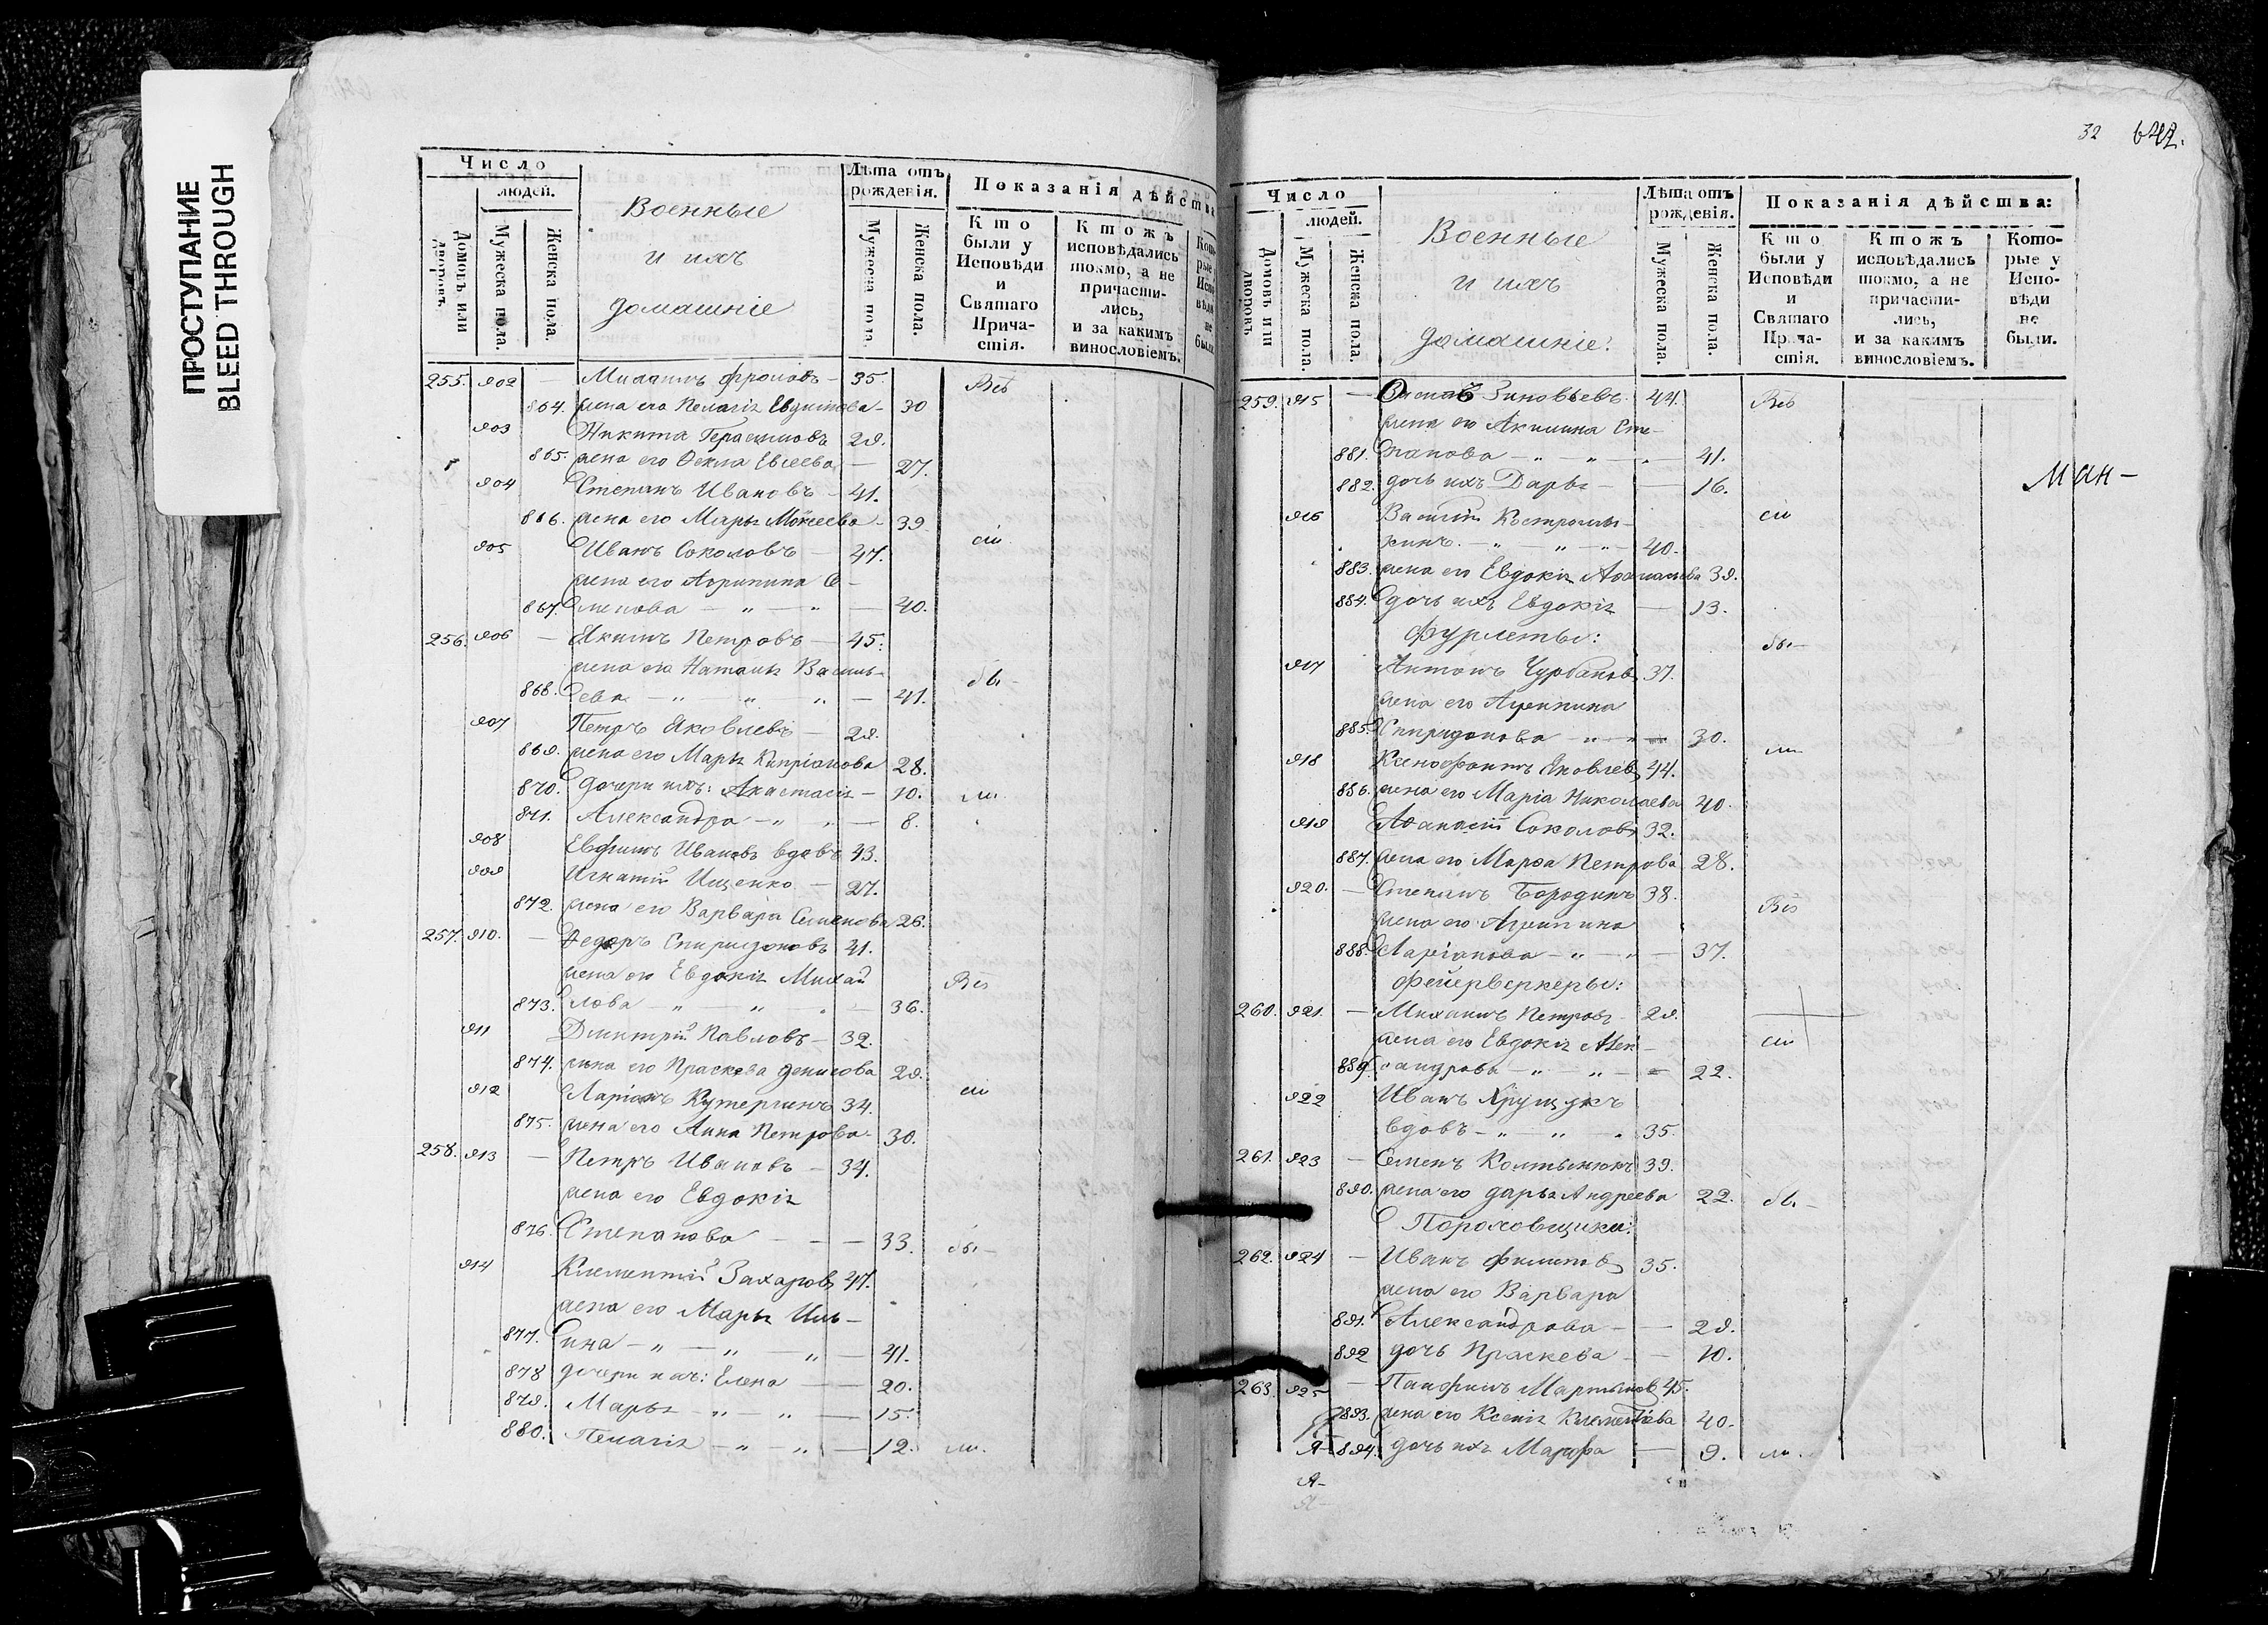 ПРОСТУПАНИЕ
BLEED THROUGH
Число
людей.
Домовъ или дворовъ.
Мужеска пола.
Женска пола.
Военные
и ихъ
домашніе
Лѣта отъ рожденія.
Мужеска пола.
Женска пола.
Показанія дѣйства
Кто были у Исповѣди и Святаго Причастія.
Ктожъ исповѣдались токмо, а не причастились, и за какимъ винословіемъ.
255. 902 — Михаилъ Фроловъ — 35.
864. жена его Пелагія Евдокимова — 30
903 Никита Герасимовъ 29.
865. жена его Ѳекла Евсеева — 27.
904 Степанъ Ивановъ — 41.
866. жена его Марья Моисеева — 39
905 Иванъ Соколовъ — 47.
жена его Агрипина Се-
867. менова — " — " — 40.
256. 906 — Якимъ Петровъ — 45.
жена его Наталья Василь-
868. ева — " " " — 41.
907 Петръ Яковлевъ — 29.
869. жена его Марья Кипріанова 28.
870. дочери ихъ: Анастасія — 10.
871. Александра — " " — 8.
908 Евфимъ Ивановъ вдовъ 43.
909 Игнатій Ищенко — 27.
872. жена его Варвара Семенова 26.
257. 910. — Ѳедоръ Спиридоновъ 41.
жена его Евдокія Михай
873. лова — " — " — 36.
911 Дмитрій Павловъ — 32.
874. жена его Праскева Денисова 29.
912 Ларіонъ Кутергинъ 34.
875. жена его Анна Петрова — 30.
258. 913 — Петръ Ивановъ — 34.
жена его Евдокія
876. Степанова — — — 33.
914 Клементій Захаровъ 47.
жена его Марья Иль-
877. ина — " — " " — 41.
878 дочери ихъ: Елена — 20.
879. Марья — " — " — 15.
880. Пелагія — " — " — 12.
32 642.
Число
людей.
Домовъ или дворовъ.
Мужеска пола
Женска пола.
Военные
и ихъ
домашніе.
Лѣта отъ рожденія.
Мужеска пола.
Женска пола.
Показанія дѣйства:
Кто были у Исповѣди и Святаго Причастія.
Ктожъ исповѣдались токмо, а не причастились, и за какимъ винословіемъ.
Которые у Исповѣди не были.
259. 915 — Зиновьевъ 44.
жена его Акилина Сте-
881. панова — " — " — 41.
882. дочь ихъ Дарья — — 16.
916 Василій Костромы-
кинъ. — " — " — 40.
883. жена его Евдокія Аѳанасьева 39.
884. дочь ихъ Евдокія — 13.
Фурлеты:
917 Антонъ Чурбановъ 37.
жена его Агрипина
885. Спиридонова — " — 30.
918 Ксенофонтъ Яковлевъ 44.
886. жена его Марія Николаева 40.
919 Аѳанасій Соколовъ 32.
887. жена его Марѳа Петрова 28.
920. — Степанъ Бородинъ 38.
жена его Агрипина
888. Ларіонова — " — " — 37.
Фейерверкеры:
260. 921. — Михаилъ Петровъ — 29.
жена его Евдокія Алек-
889. сандрова — " — " — 22.
922 Иванъ Хрущукъ
вдовъ — " — " 35.
261. 923 — Семенъ 39.
890. жена его Дарья Андреева 22.
Пороховщики:
262. 924 — Иванъ Филиповъ 35.
жена его Варвара
891. Александрова — — 29.
892 дочь Праскева — — 10.
263. 925 — Панфилъ Мартыновъ 45.
893. жена его Ксенія Клементіева 40.
894. дочь ихъ Марфа — 9.